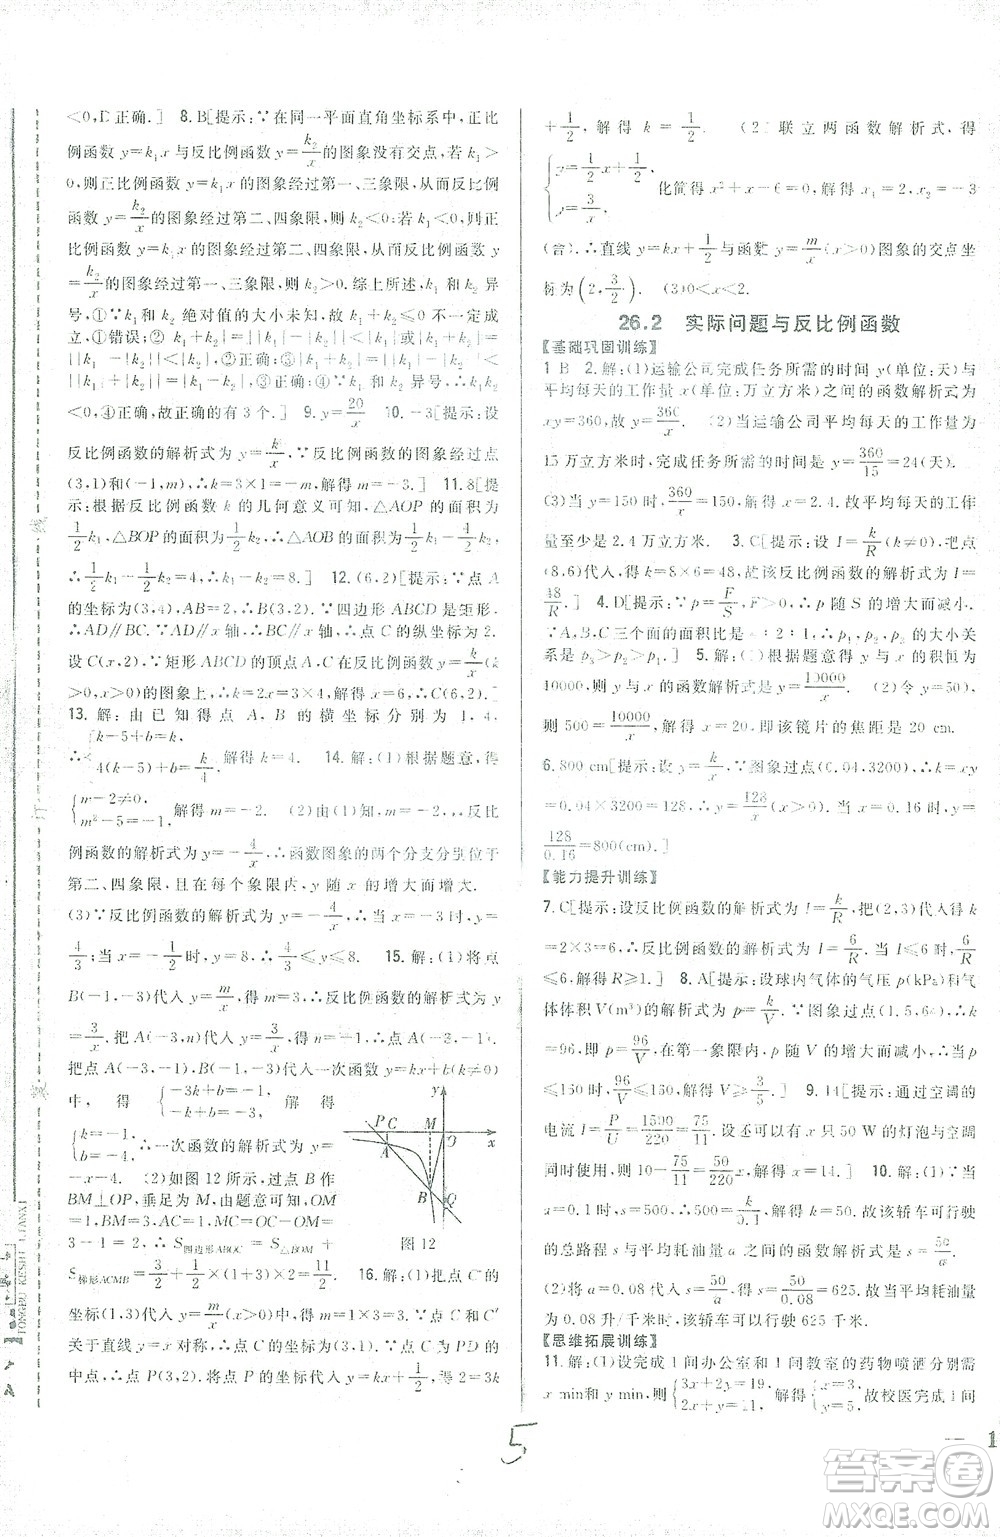 <0,D正确.] 8.B[提示:∵在同一平面直角坐标系中,正比
例函数 y=k₁x 与反比例函数 y=k₂/x 的图象没有交点,若 k₁>
0,则正比例函数 y=k₁x 的图象经过第一、三象限,从而反比例
函数 y=k₂/x 的图象经过第二、四象限,则 k₂<0;若 k₁<0,则正比
例函数 y=k₁x 的图象经过第二、四象限,从而反比例函数 y=
k₂/x 的图象经过第一、三象限,则 k₂>0. 综上所述,k₁ 与 k₂ 异
号,①∵k₁ 与 k₂ 异号,绝对值的大小未知,
0,④正确,故正确的有 3 个.] 9. y=20/x 10. -3[提示:设
反比例函数的解析式为 y=k/x(k≠0),
(3,1)和(-1,m),∴k=3×1=-m,解得 m=-3.] 11.8[提
示:根据反比例函数 k 的几何意义可知,△AOP 的面积为
1/2k₁,△BOP 的面积为 1/2k₂,∴△AOB 的面积为 1/2k₁-1/2k₂=4.
∴1/2k₁-1/2k₂=4,∴k₁-k₂=8.] 12. (6,2)[提示:∵点 A
的坐标为(3,4),AB=2,∴B(3,2).∵四边形 ABCD 是矩形,
∴AD∥BC.∵AD∥x 轴,∴BC∥x 轴.∴点 C 的纵坐标为 2.
设 C(x,2).∵矩形 ABCD 的顶点 A、C 在反比例函数 y=k/x(k
>0,x>0)的图象上,∴k=2x=3×4,∴x=6,∴C(6,2).]
13. 解:由已知得点 A、B 的横坐标分别为 1,4,
∴{k-5+b=k 4k-5+b=k/4,解得 k=4. 14. 解:(1)根据题意,得
{m-2≠0 m²-5=-1,解得 m=-2. (2)由(1)可得 m=-2,∴反比
例函数的解析式为 y=-4/x,∴函数图象的两个分支分别位于
第二、四象限,且在每个象限内,y 随 x 的增大而增大.
(3)∵反比例函数的解析式为 y=-4/x,∴当 x=-3 时,y=
4/3;当 x=-1/2 时,y=8.∴4/3≤y≤8. 15. 解:(1)把点
B(-1,-3)代入 y=m/x,得 m=3.∴反比例函数的解析式为
y=3/x.把 A(-3,n)代入 y=3/x,得 n=-1.∴点 A(-3,-1).
把点 A(-3,-1),B(-1,-3)代入一次函数 y=kx+b
中,得{-3k+b=-1,-k+b=-3,解得
{k=-1,b=-4,∴一次函数的解析式为 y=
-x-4. (2)如图 12 所示,过点 B 作
BM⊥OP,垂足为 M,由题意可知,OM
=1,BM=3,AC=1,MC=OC-OM=
3-1=2,∴S四边形ABOC=S△BOM+
S梯形ACMB=3/2+1/2×(1+3)×2=11/2.
y P C M O x A B Q
图 12
16. 解:(1)把点 C 的
坐标(1,3)代入 y=m/x(x>0),得 m=1×3=3.∵点 C 和 C′
关于直线 y=x 对称,∴点 C′的坐标为(3,1).∵PD=1,
∴点 P(3,2),把点 P(3,2)代入
+1/2,解得 k=1/2. (2)联立两函数解析式,得
{y=1/2x+1/2 y=3/x,化简得 x²+x-6=0,解得 x₁=2,x₂=-3
(舍).∴直线 y=kx+1/2与函数 y=m/x(x>0)图象的交点坐
标为(2,3/2). (3)0<x<2.
26.2 实际问题与反比例函数
【基础巩固训练】
1. B 2. 解:(1)运输公司完成任务所需的时间 y(单位:天)与
平均每天的工作量 x(单位:万立方米)之间的函数解析式为
xy=360,故 y=360/x. (2)当运输公司平均每天的工作量为
15 万立方米时,完成任务所需的时间为 y=360/15=24(天).
(3)当 y=150 时,360/x=150,解得 x=2.4.故平均每天的工作
量至少是 2.4 万立方米. 3. C[提示:设 I=k/R(k≠0),把点
(8,6)代入,得 k=8×6=48,故该反比例函数的解析式为 I=
48/R.] 4. D[提示:∵p=F/S,F>0,∴p 随 S 的增大而减小.
∵A、B、C 三个面的面积比是 4∶2∶1,∴p₁,p₂,p₃ 的大小关
系是 p₃>p₂>p₁.] 5. 解:(1)根据题意得 y 与 x 的积恒为
10000,则 y 与 x 的函数解析式为 y=10000/x. (2)令 y=500,
则 500=10000/x,解得 x=20,即该镜片的焦距是 20 cm.
6. 800 cm[提示:设 y=k/x,∵图象过点(0.04,3200),∴k=xy
=0.04×3200=128,∴y=128/x(x>0).当 x=0.16 时,y=
128/0.16=800(cm).]
【能力提升训练】
7. C[提示:设反比例函数的解析式为 I=k/R,把(2,3)代入得 k
=2×3=6,∴反比例函数的解析式为 I=6/R,当 I≤6 时,6/R
≤6,解得 R≥1.] 8. A[提示:设球内气体的气压 p(kPa)和气
体体积 V(m³)的解析式为 p=k/V.∵图象过点(1.5,64),∴k
=96,即 p=96/V.在第一象限内,p 随 V 的增大而减小,∴当 p
≤150 时,96/V≤150,解得 V≥ 9. 14[提示:通过空调的
电流 I=P/U=1500/220=75/11,设还可以有 x 只 50 W 的灯泡与空调
同时使用,则10-75/11≥50/220x,
a=0.1,s=500 代入 s=k/a,得 500=k/0.1,k=50.故该轿车可行驶
的总路程 s 与平均耗油量 a 之间的函数解析式为 s=50/a.
(2)将 a=0.08 代入 s=50/a,得 s=50/0.08=625.故当平均耗油量
为 0.08 升/千米时,该轿车可行驶 625 千米.
【思维拓展训练】
11. 解:(1)设完成 1 间办公室和 1 间教室的药物喷洒分别需
x min和y min,则{3x+2y=19,2x+y=11,解得{x=3,y=5.故校医完成 1 间
5
答案圈
MXQE.COM